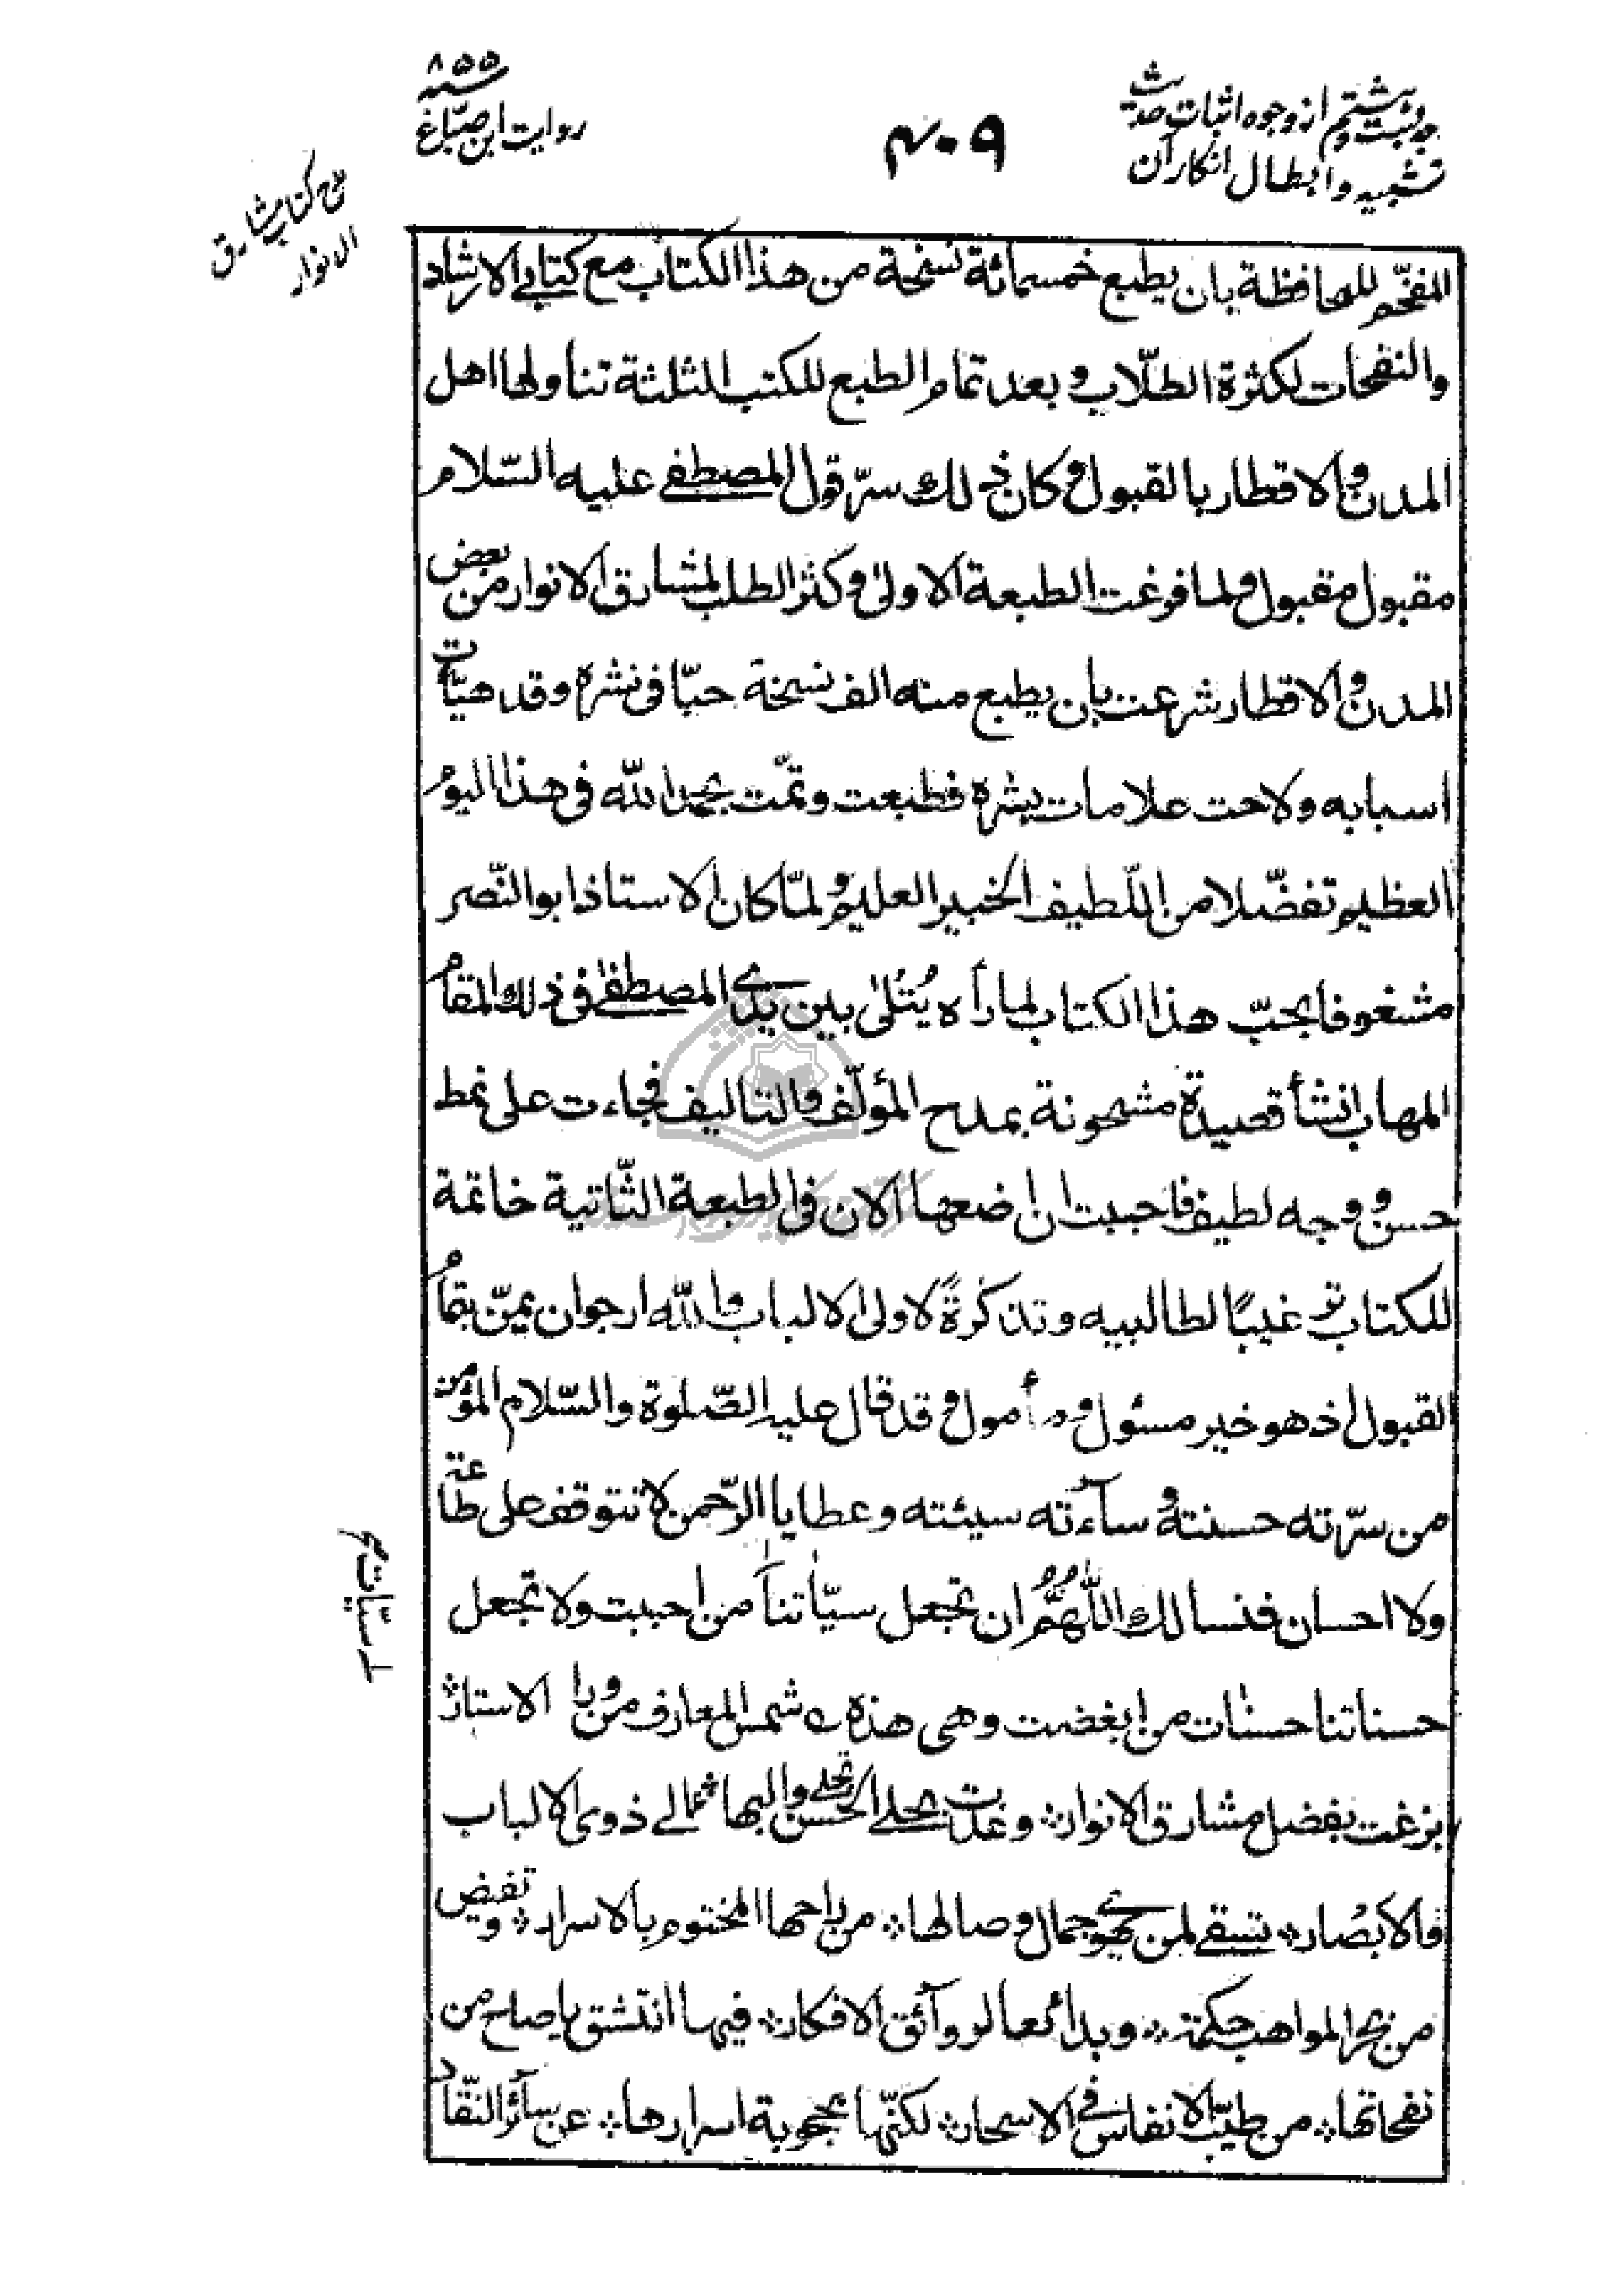 وجه بیست و هشتم از وجوه اثبات حدیث
تشبیه و ابطال انکار آن
۴۰۹
۸۵۵ سنه
روایت ابن صبّاغ
مدح کتاب مشارق
الانوار
المفخّم للمحافظة بان يطبع خمسمائة نسخة من هذا الكتاب مع كتابى الارشاد
والنفحات لكثرة الطلّاب و بعد تمام الطبع للكتب الثلثة تناولها اهل
المدن و الاقطار بالقبول و كان ذلك سرّ قول المصطفى عليه السّلام
مقبول مقبول و لما فرغت الطبعة الاولى و كثر الطلب لمشارق الانوار من بعض
المدن و الاقطار شرعت بان يطبع منه الف نسخة حبّا فى نشره و قد هيّات
اسبابه و لاحت علامات بشره فطبعت و تمّت بحمد الله فى هذا اليوم
العظيم تفضّلا من اللّطيف الخبير العليم و لمّا كان الاستاذ ابو النّصر
مشغوفا بحبّ هذا الكتاب لما رأه يُتلى بين يدى المصطفى فى ذلك المقام
المهاب انشأ قصيدة مشحونة بمدح المؤلّف و التاليف فجاءت على نمط
حسن و وجه لطيف فاحببت ان اضعها الان فى الطبعة الثّانية خاتمة
للكتاب ترغيبًا لطالبيه و تذكرةً لاولى الالباب و الله ارجو ان يمنّ بتمام
القبول اذ هو خير مسئول و مأمول و قد قال عليه الصّلوة و السّلام المؤمن
من سرّته حسنته و سآءته سيئته و عطايا الرّحمن لا تتوقف على طاعة
و لا احسان فنسألك اللّهُمَّ ان تجعل سيّأتنا من احببت و لا تجعل
حسناتنا حسنات من ابغضت و هى هذه شمس المعارف من ورا الاستار
بزغت بفضل مشارق الانوار وغدت بحلى الحسن تجلى و البها لى ذوى الالباب
و الابصار تسقى لمن يهوى جمال وصالها من راحها المختوم بالاسرار و تفيض
من بحر المواهب حكمة و بدائعا لروآئق الافكار فيها انتشق يا صاح من
نفحاتها من طيّب الانفاس فى الاسحار لكنّها محجوبة اسرارها عن سائر النّقّاد
سيّات